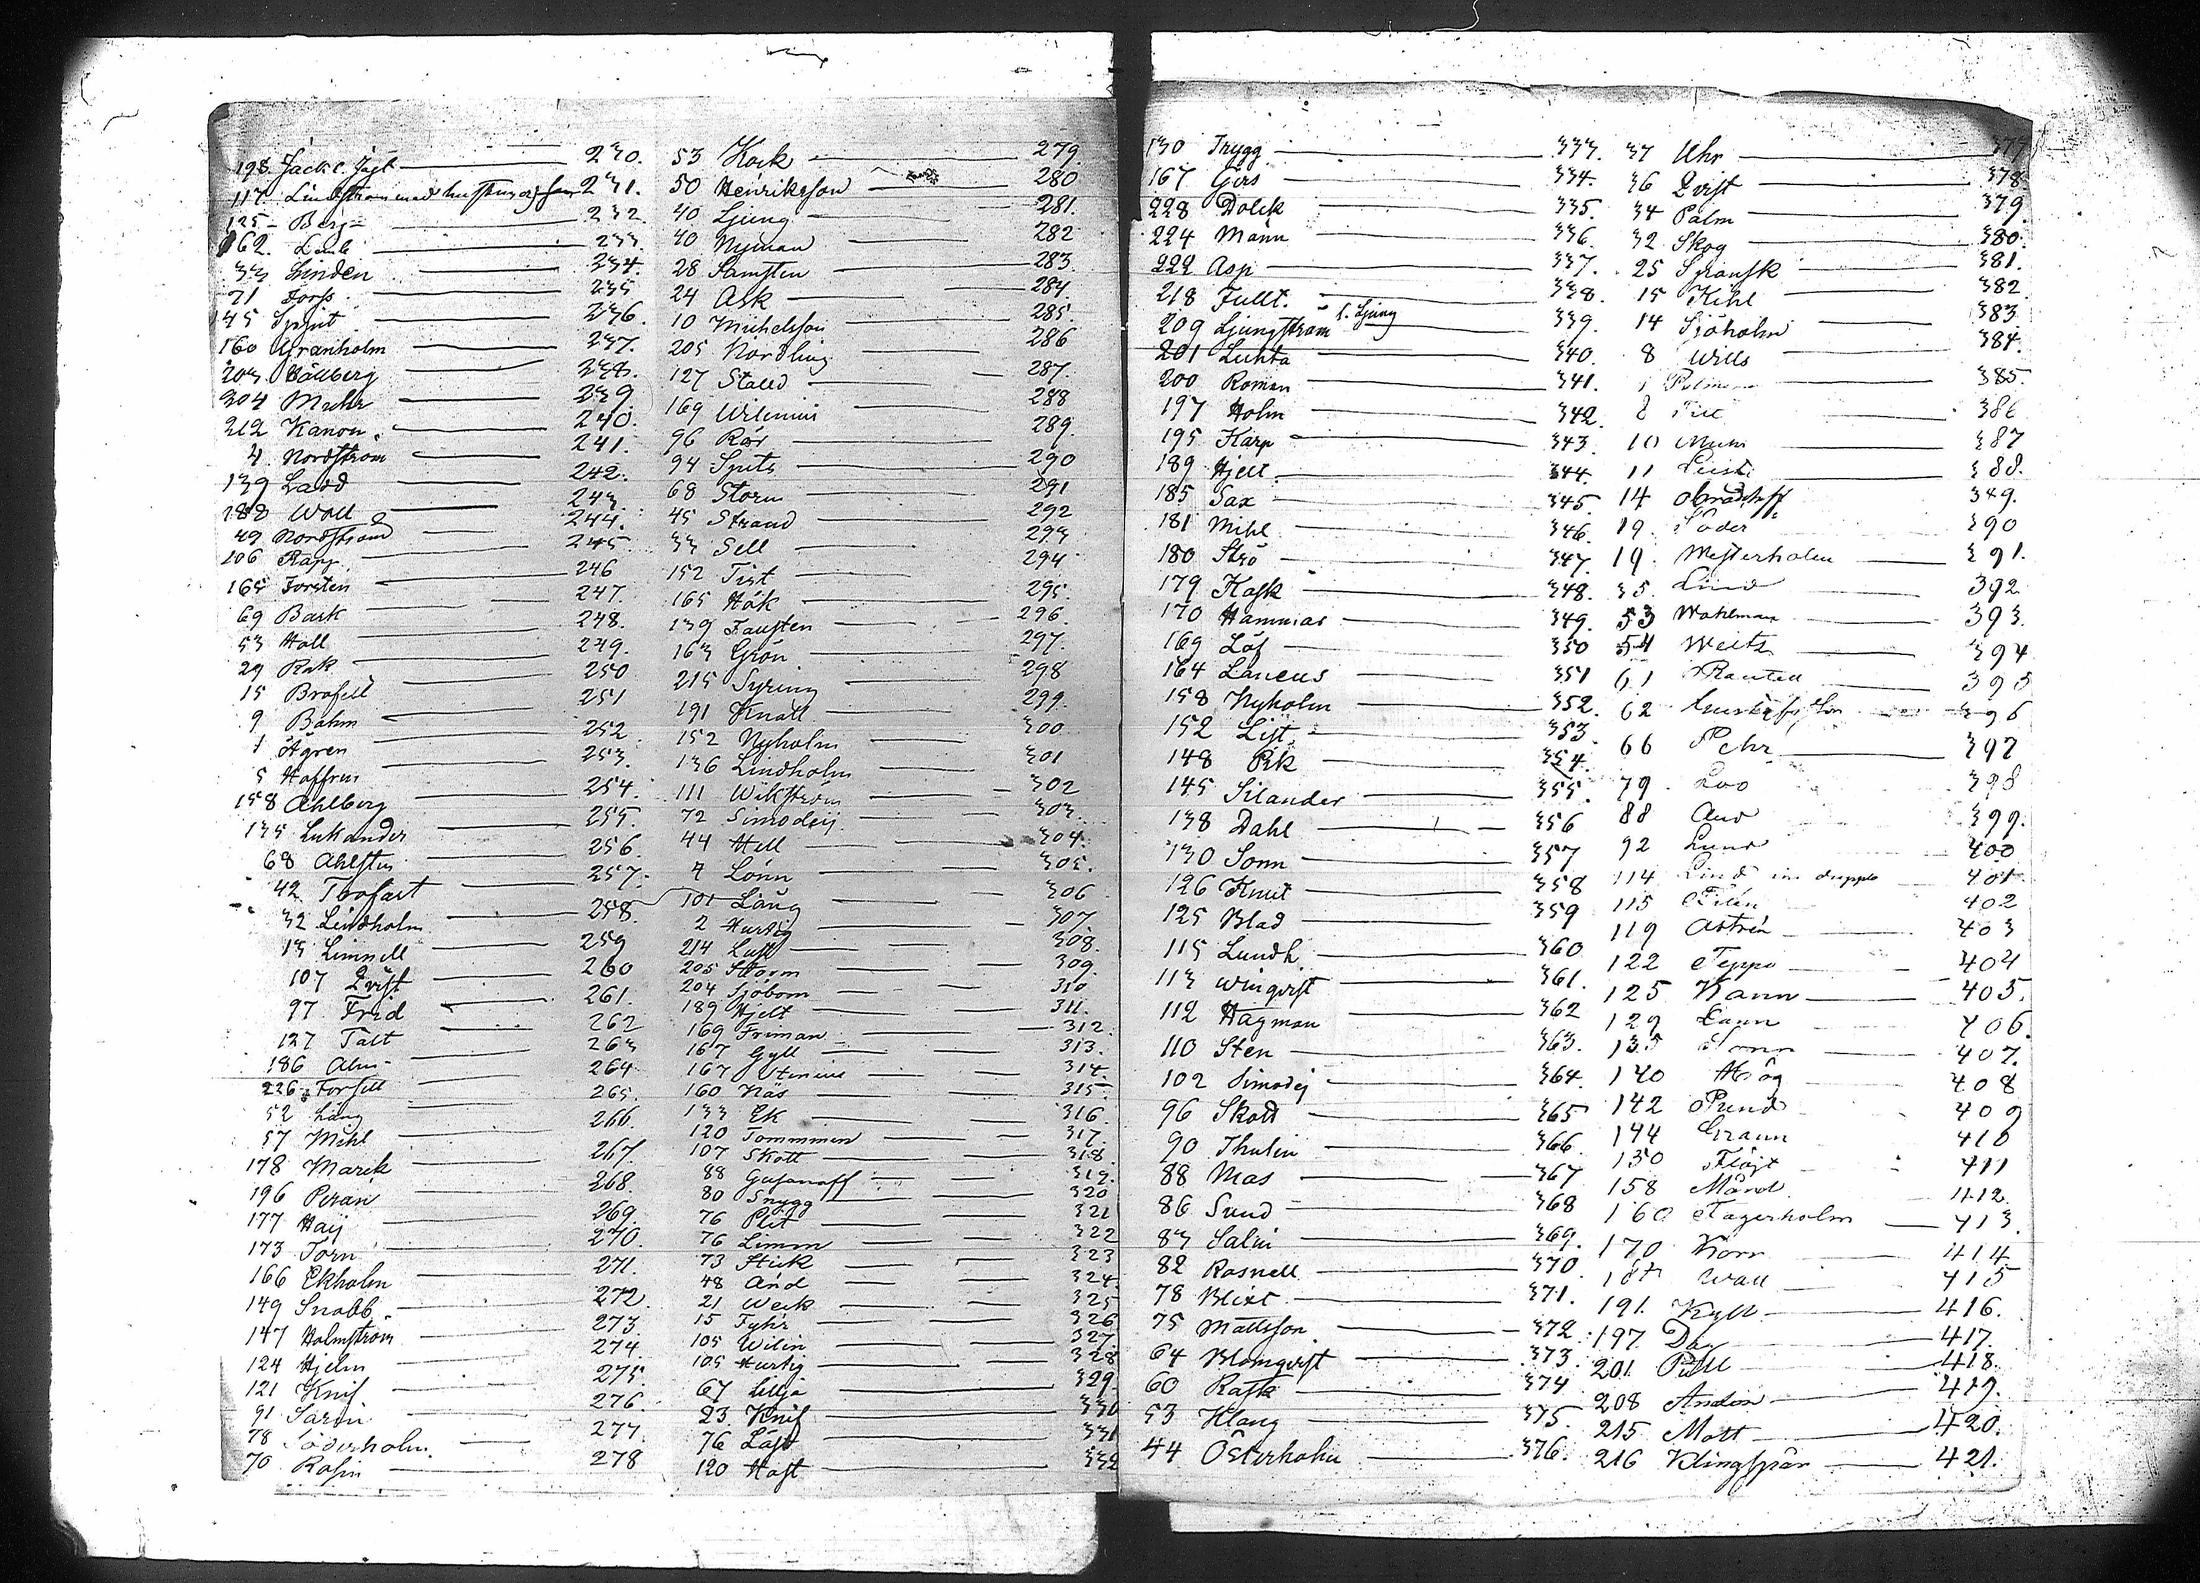 198 Jack l. Jägt 230.
117 Lindström med hustru och 231.
125 Berg 232.
162. 233.
33 Linden 234.
21 Fors 235
145 Sprut 236.
160 Granholm 237.
203 Vällberg 238.
204 Muhr 239
212 Kanon. 240.
4 Nordström 241.
139 Ladd 242.
188 Wall 243.
49 Nordstrand 244.
106 Rapp 245
165 Forsten 246
69 Bark 247.
53 Hall 248.
29 Rak 249.
15 Brofelt 250
9 Böhm 251
1 Ågren 252.
5 Hoffren 253.
158 Ahlberg 254.
135 Lukander 255.
68 Ahlsten 256.
42 Trofast 257.
32 Lindholm 258.
13 Limnell 259
107 Qvist 260
97 Frid 261.
127 Tält 262
186 Alm 263
226 Forsell 264
52 Lång 265.
57 Mihl 266.
178 Marck 267.
196 Peran 268.
177 Haij 269.
173 Törn 270.
166 Ekholm 271.
149 Snabb 272.
147 Holmström 273
124 Hjelm 274.
121 Knif 275.
91 Sarin 276.
78 Söderholm. 277.
70 Rosin 278
53 Kock 279.
50 Henriksson 280
40 Ljung 281.
40 Nyman 282
28 Lamsten 283.
24 Ask 284.
10 Michelsson 285.
205 Nordling 286
127 Stadd 287.
169 Wilenius 288
96 Rör 289.
94 Spets 290
68 Storm 291
45 Strand 292
33 Sell 293
152 Tist 294
165 Hök 295.
139 Fausten 296.
163 Grön 297.
215 Syring 298
191 Knall 299.
152 Nyholm 300
136 Lindholm 301
111 Wikström 302
72 Simodeij 303.
44 Hell 304.
7 Lönn 305.
101 Lång 306
2 Hurtig 307.
214 Luft 308.
205 Storm 309.
204 Sjöbom 310
189 Hjelt 311.
169 Friman 312.
167 Gyll 313.
167 Stenius 314.
160 Näs 315
133 Ek 316
120 Tommminen 317.
107 Skott 318.
88 Gusanoff 319.
80 Snygg 320
76 Plit 321
76 Limm 322
73 Stick 323
48 And 324
21 Weck 325
15 Fyhr 326
105 Wilén 327
105 Hurtig 328
67 Lilja 329
23. Knif 330
76 Löst 331
120 Hast 332
130 Trygg 333.
167 Gers 334.
228 Dolck 335.
224 Mann 336.
222 Asp 337.
218 Fullt. 338.
209 Ljungström l. Ljung 339.
201 Luhta 340.
200 Roman 341.
197 Holm 342.
195 Karp 343.
189 Hjelt 344.
185 Sax 345.
181 Mihl 346.
180 Strö 347.
179 Kask 348.
170 Hammar 349.
169 Löf 350
164 Laneus 351
158 Nyholm 352.
152 List 353.
148 Rik 354.
145 Silander 355.
138 Dahl 356
130 Sonn 357
126 Knut 358
125 Blad 359
115 Lundh. 360
113 Winqvist 361.
112 Hagman 362
110 Sten 363.
102 Simodej 364.
96 Skott 365
90 Thulin 366
88 Mas 367
86 Sund 368
83 Salin 369.
82 Rosnell 370
78 Blixt 371.
75 Mattsson 372
64 Blomqvist 373.
60 Rask 374
53 Klang 375.
44 Österholm 376.
37 Uhr 377
36 Qvist 378.
34 Palm 379.
32 Skog 380.
25 Spansk 381.
15 Kihl 382
14 Sjöholm 383.
8 Wills 384.
385.
8 Till 386
10 Mum 387
11 Quist 388.
14 389.
19. Söder 390
19. Westerholm 391.
35. Lind 392
53 Wahlman 393.
54 Weits 394
61 Rautell 395
62 Gustafsson 396
66 Pehr 397
79 Loo 398
88 And 399.
92 Lund 400
114 Lind in dupplo 401
115 Filén 402
119 Astrén 403
122 Teppo 404
125 Kann 405.
129 Lann 406.
135 Sonn 407.
140 Hög 408
142 Pund 409
144 Grann 410
150 Flöjt 411
158 Mård 412.
160 Fagerholm 413.
170 Korr 414.
187 Wall 415
191. Kyll 416.
197 Dag 417.
201. Pill 418.
208 Anden 419.
215 Matt 420.
216 Klingspår 421.